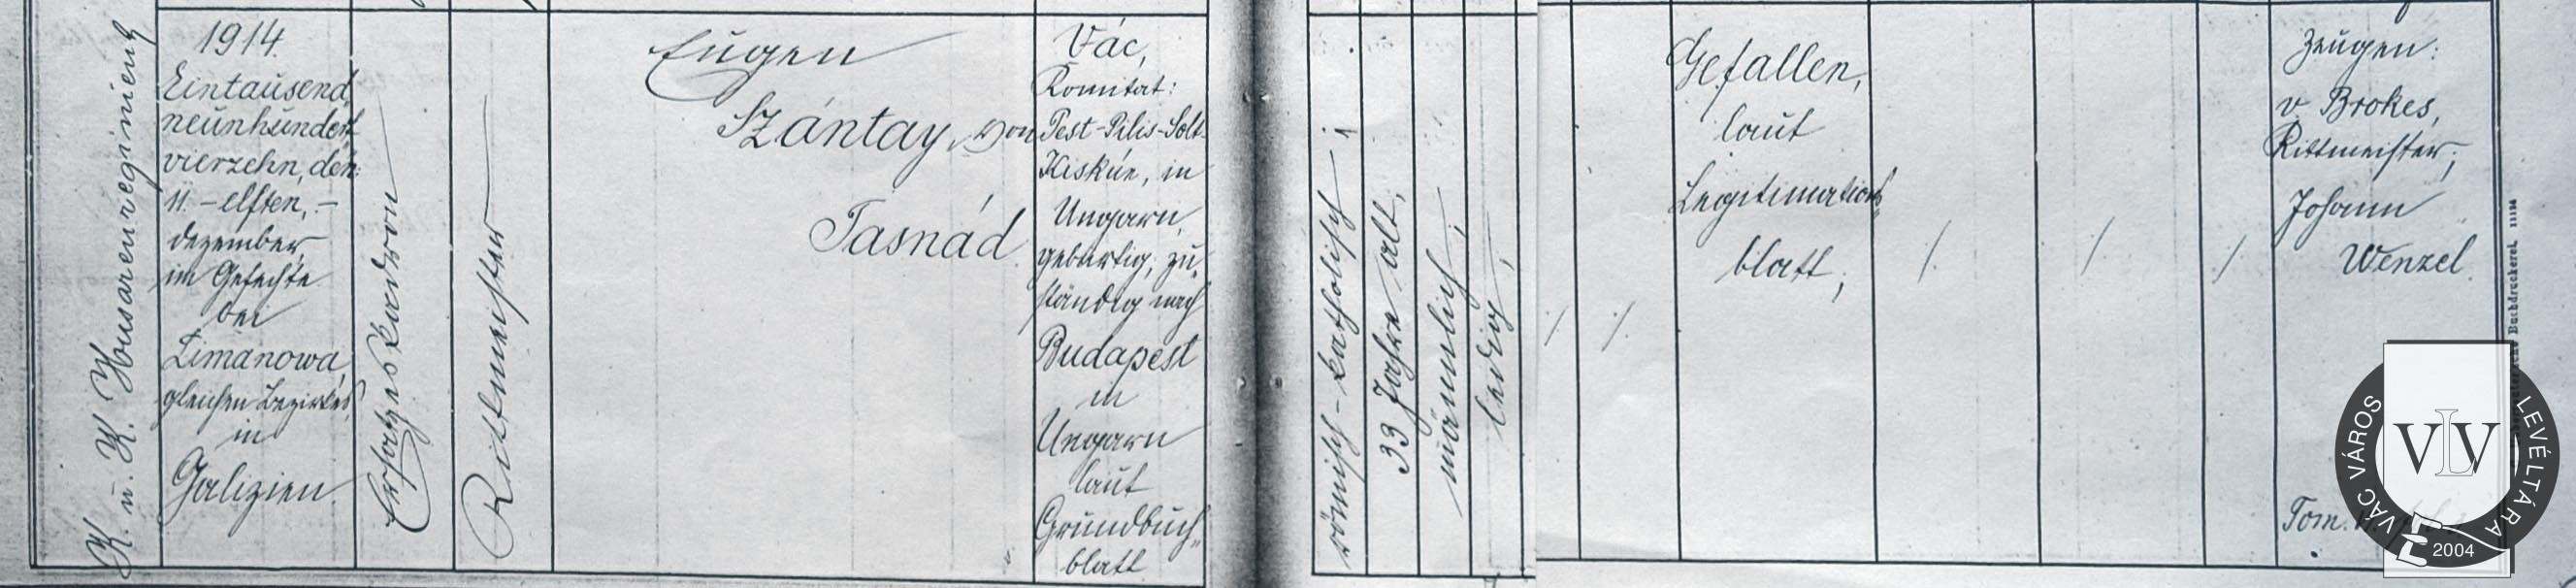 K. u. K. Husarenregiment
1914.
Eintausend
neunhundert
vierzehn, den
11. – elften, –
dezember,
im Gefechte
bei
Limanowa,
gleichen Bezirkes
in
Galizien.
Ersatzeskadron
Rittmeister
Eugen
Szántay von
Tasnád
Vác,
Komitat:
Pest-Pilis-Solt-
Kiskún, in
Ungarn,
gebürtig, zu-
ständig nach
Budapest
in
Ungarn
laut
Grundbuch-
blatt
römisch-katholisch;
33 Jahre alt;
männlich;
ledig;
/
/.
Gefallen,
laut
Legitimations-
blatt;
/.
/.
/.
Zeugen:
v. Brokes,
Rittmeister;
Johann
Wenzel.
Tom.
Buchdruckerei. 11134
VÁC VÁROS LEVÉLTÁRA
VLV
2004